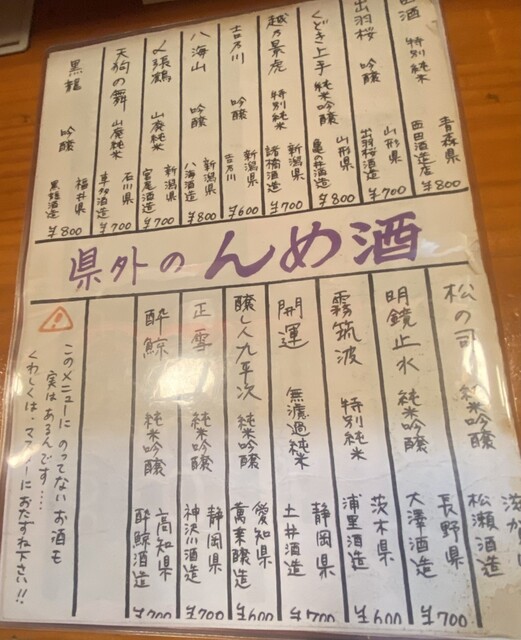 酒 特別純米 青森県 西田酒造店 ¥800
出羽桜 吟醸 山形県 出羽桜酒造 ¥700
くどき上手 純米吟醸 山形県 亀の井酒造 ¥800
越乃景虎 特別純米 新潟県 諸橋酒造 ¥700
吉乃川 吟醸 新潟県 吉乃川 ¥600
八海山 吟醸 新潟県 八海酒造 ¥800
〆張鶴 山廃純米 新潟県 宮尾酒造 ¥700
天狗の舞 山廃純米 石川県 車多酒造 ¥700
黒龍 吟醸 福井県 黒龍酒造 ¥800
県外のんめ酒
松の司 純米吟醸 滋賀 松瀬酒造
明鏡止水 純米吟醸 長野県 大澤酒造 ¥700
霧筑波 特別純米 茨木県 浦里酒造 ¥600
開運 無濾過純米 静岡県 土井酒造 ¥700
醸し人九平次 純米吟醸 愛知県 萬乗醸造 ¥600
正雪 純米吟醸 静岡県 神沢川酒造 ¥700
酔鯨 純米吟醸 高知県 酔鯨酒造 ¥700
このメニューにのってないお酒も
実はあるんです‥‥
くわしくは、マスターにおたずね下さい!!